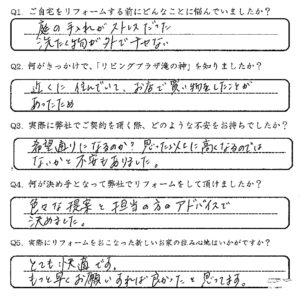 Q1. ご自宅をリフォームする前にどんなことに悩んでいましたか？
庭の手入れがストレスだった
洗たく物が外でほせない
Q2. 何がきっかけで、「リビングプラザ滝の神」を知りましたか？
近くに住んでいて、お店で買い物をしたことが
あったため
Q3. 実際に弊社でご契約を頂く際、どのような不安をお持ちでしたか？
希望通りになるのか？思った以上に高くなるのでは
ないかと不安もありました。
Q4. 何が決め手となって弊社でリフォームをして頂けましたか？
色々な提案と担当の方のアドバイスで
決めました。
Q5. 実際にリフォームをおこなった新しいお家の住み心地はいかがですか？
とても快適です。
もっと早くお願いすれば良かったと思ってます。